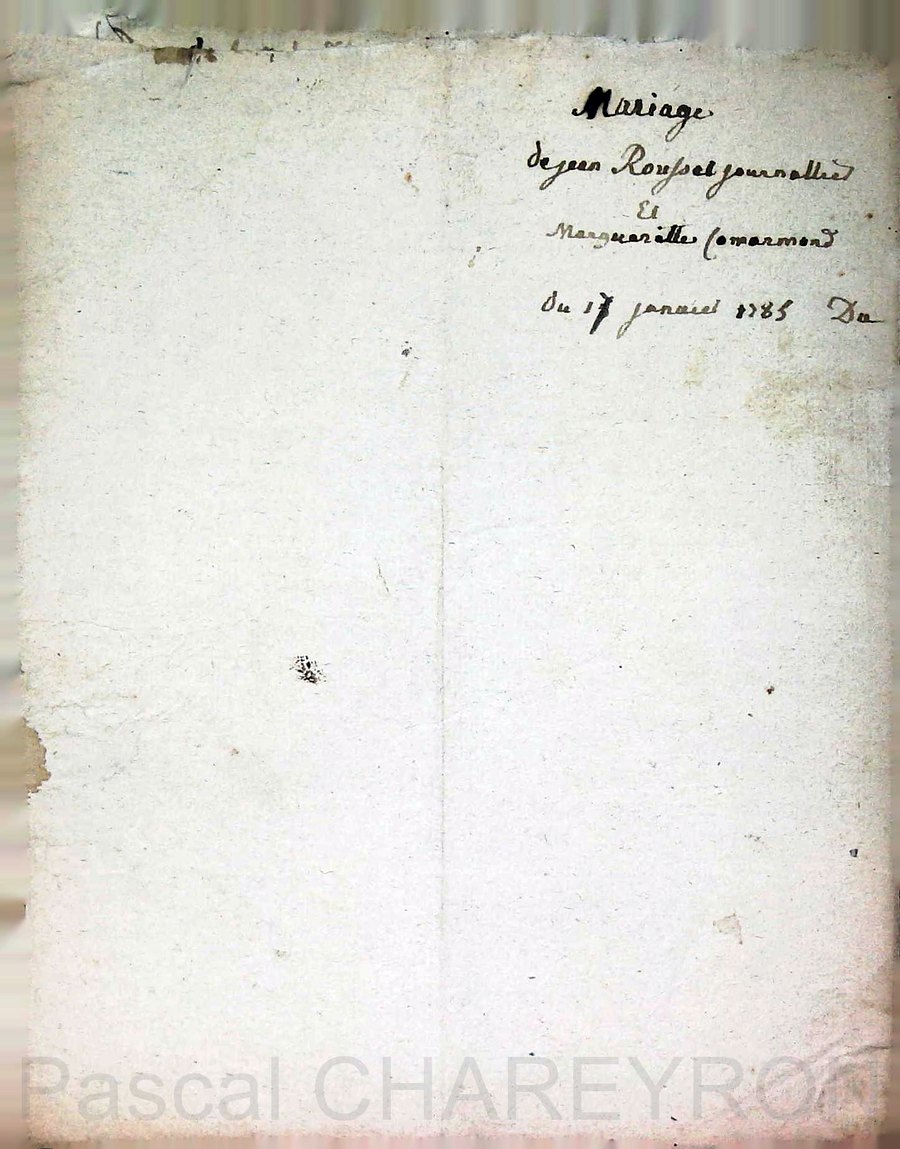 Mariage
de jean Rousset journallier
Et
Margueritte Comarmond
du 17 janvier 1785 Du
Pascal CHAREYRON